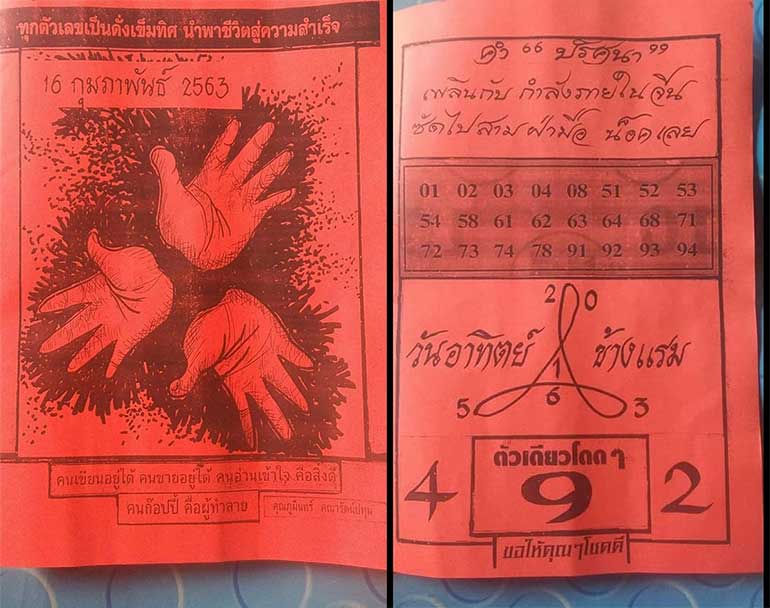 ทุกตัวเลขเป็นดั่งเข็มทิศ นำพาชีวิตสู่ความสำเร็จ
16 กุมภาพันธ์ 2563
คนเขียนอยู่ได้ คนขายอยู่ได้ คนอ่านเข้าใจ คือสิ่งดี
คนก๊อปปี้ คือผู้ทำลาย
คุณภูมินทร์
คำ “ ปริศนา ”
เพลินกับ กำลังภายใน จีน
ซัดไปสาม ฝ่ามือ น็อคเลย
01 02 03 04 08 51 52 53
54 58 61 62 63 64 68 71
72 73 74 78 91 92 93 94
2 0
วันอาทิตย์ 1 ข้างแรม
5 6 3
ตัวเดียวโดดๆ
4 9 2
ขอให้คุณๆโชคดี